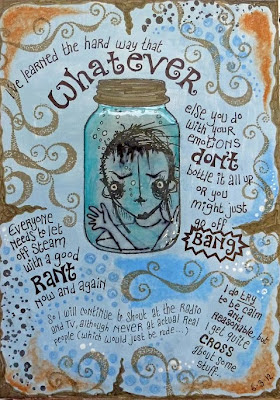 I've learned the hard way that
Whatever
else you do
with your
emotions
don't
bottle it all up
or you
might just
go off
BANG!
Everyone
needs to let
off steam
with a good
RANT
now and again
So I will continue to shout at the radio
and TV, although NEVER at actual real
people (which would just be rude...)
I do try
to be calm
and
reasonable, but
I get quite
CROSS
about some
stuff...
6·3·12